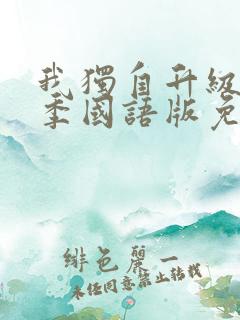 我獨自升級
季國語版免
緋色麗一
未任同意禁止轉載